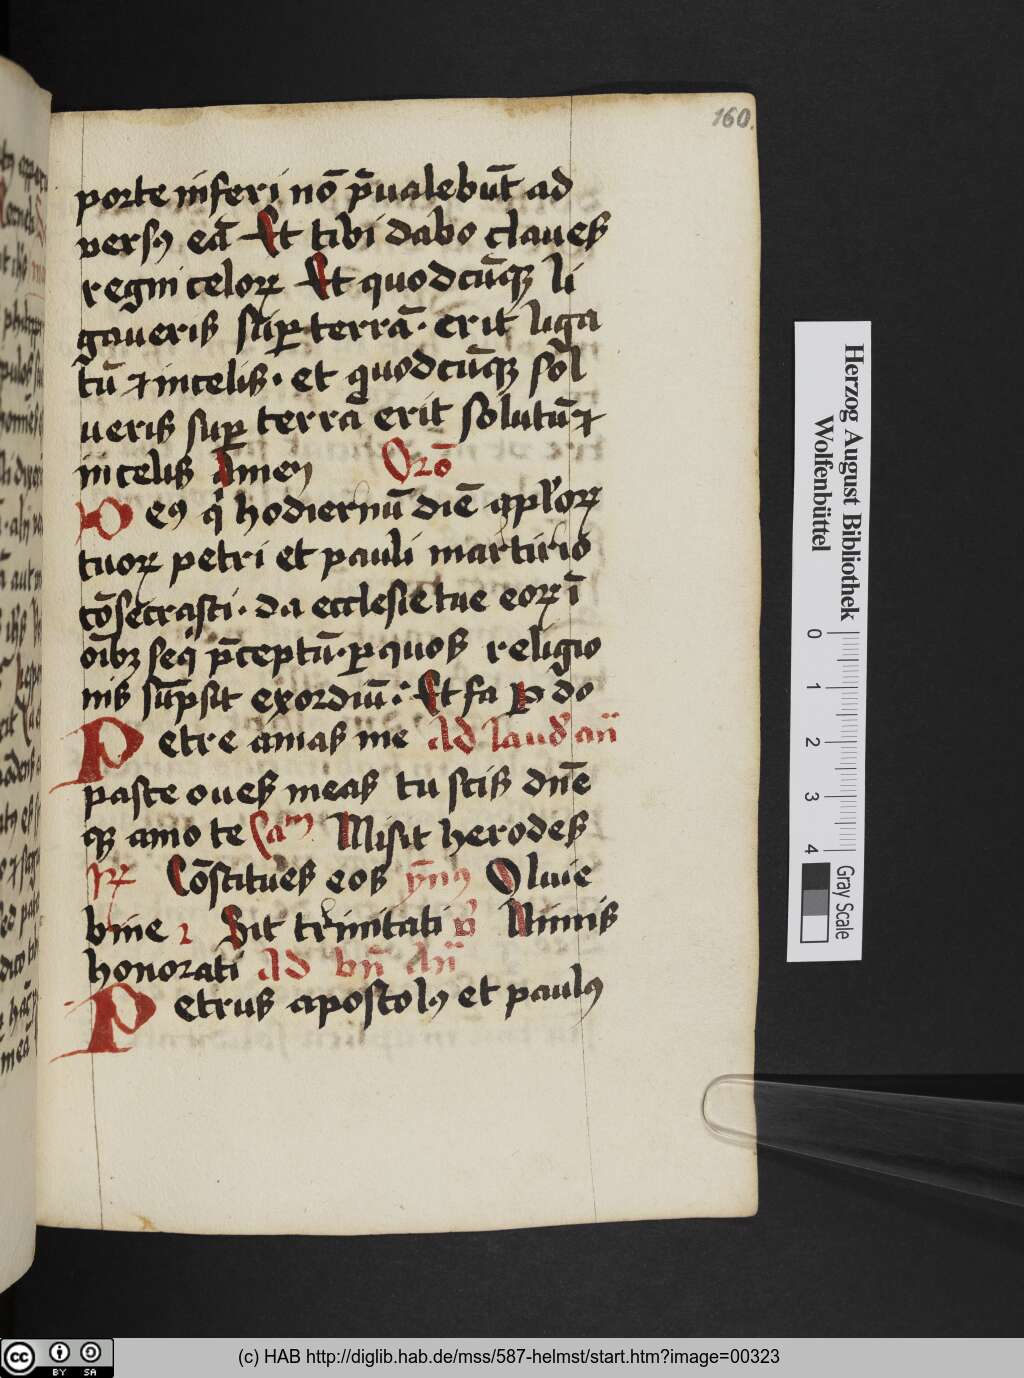 160.
porte inferi nō p̄ualebūt ad
versꝰ eā Et tibi dabo claues
regni celoꝝ Et quodcūqꝫ li
gaueris suꝑ terrā· erit liga
tū ⁊ in celis· et quodcūqꝫ sol
ueris suꝑ terrā erit solutū ⁊
in celis Amen Orō
Deꝰ qͥ hodiernū diē aplʼoꝝ
tuoꝝ petri et pauli martirio
cōsecrasti· da ecclesie tue eoꝝ ī
oībꝫ seqͥ p̄ceptū· ꝑ quos religio
nis sūpsit exordiū· Et fa ꝑ do
Petre amas me Ad laudʼ añ
pasce oues meas tu scis dn̄e
qꝫ amo te Caᵐ Misit herodes
Rꝝ Cōstitues eos ỹnꝰ O luie
bine ꝛ Sit trinitati v̾ Nimis
honorati Ad bn̄ An̄
Petrus apostolꝰ et paulꝰ
Herzog August Bibliothek
Wolfenbüttel
0 1 2 3 4
Gray Scale
cc BY SA
(c) HAB http://diglib.hab.de/mss/587-helmst/start.htm?image=00323